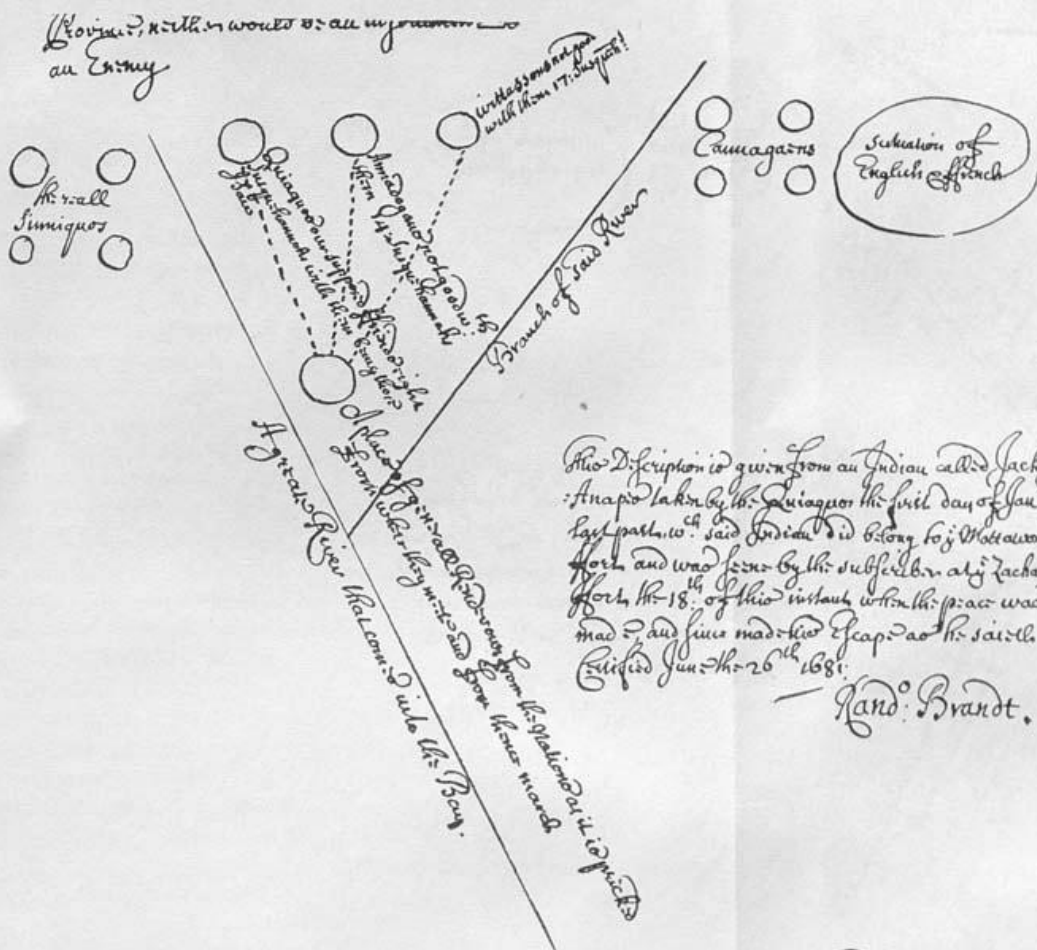 Province, neither would be an
an Enemy
the rest all
Sinniquos
Quiaquos our supposed ffriends eight
Susquehannahs with them being there
Amiadogamo not good wth
them 14 Susquehannahs
with them 17: Susqueh:
Cannagaens
scituation of
English & ffrench
Branch of said River
A place of generall Randevous from the Nations as it is pricked
from wher they mete and from thence march
A greate River that comes into the Bay.
This Description is given from an Indian called Jack
Anapis taken by the Quiaquos the first day of Jan
last past, wch said Indian did belong to ye Mattawo
ffort and was seene by the subscriber at ye Zacha
ffort the 18th of this instant when the peace was
made, and since made his Escape as he saieth
Certified June the 26th 1681:
Rando: Brandt.